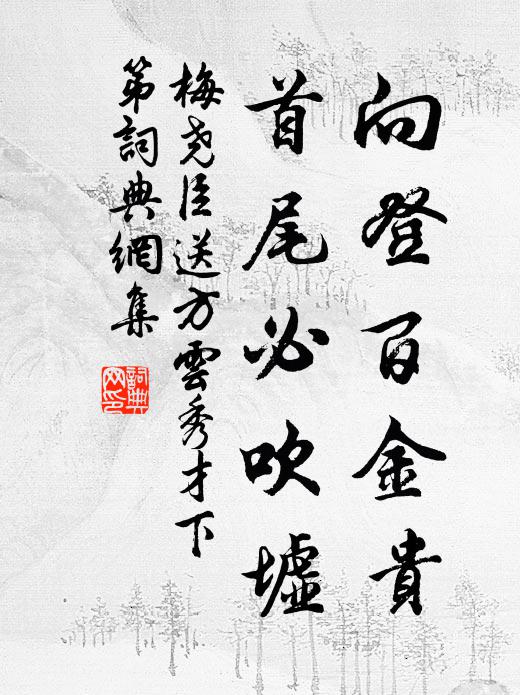 向登百金貴
首尾必吹墟
梅尧臣送方雲秀才下
第詞典網集
詞典
网印